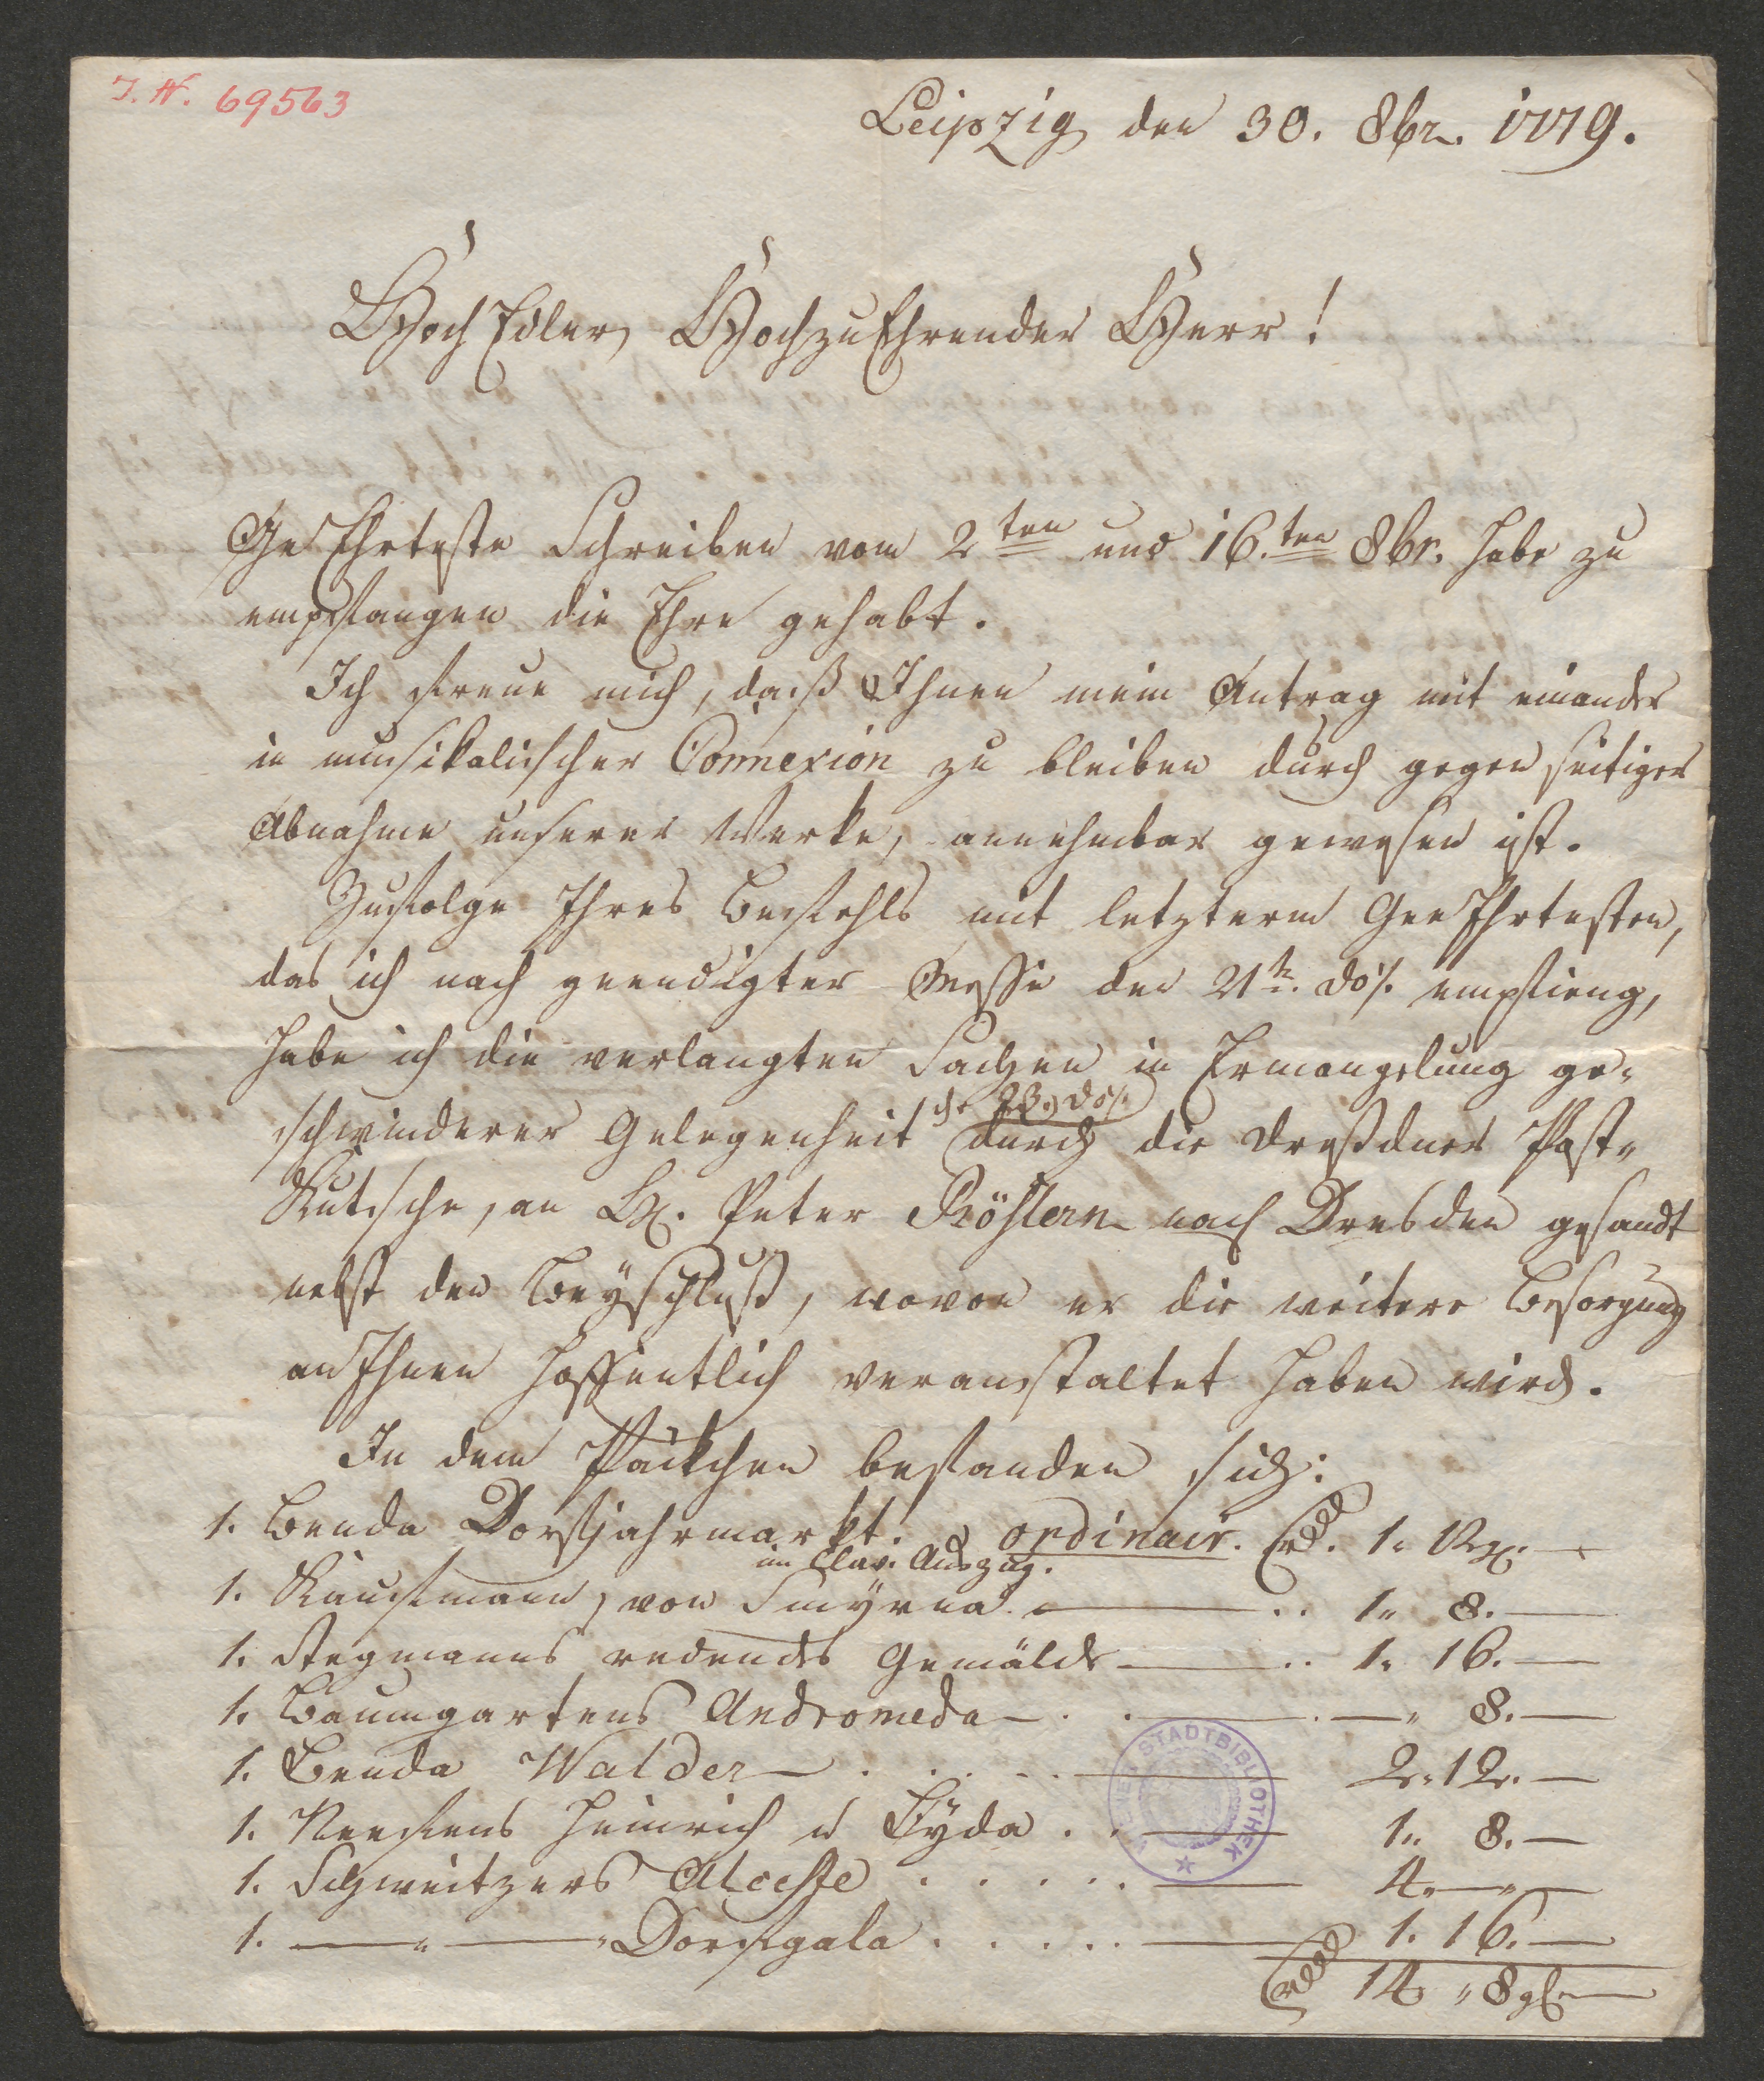 J. N. 69563
Leipzig den 30. 8br. 1779.
HochEdler, HochzuEhrender Herr!
GeEhrteste Schreiben vom 2ten und 16.ten 8br. habe zu
empfangen die Ehre gehabt.
Ich freue mich, daß Ihnen mein Antrag mit einander
in musikalischer Connexion zu bleiben durch gegenseitiger
Abnahme unserer Werke, annehmbar gewesen ist.
Zufolge Ihres Befehls mit letzterm GeeEhrtesten,
das ich nach geendigter Messe den 21tn. do/. empfieng,
habe ich die verlangten Sachen in Ermangelung ge-
de 23. do/.
schwinderer Gelegenheit durch die Dreßdner Post-
Kutsche, an H. Peter Rößlern nach Dresden gesandt
nebst den Beyschluß, wovon er die weitere Besorgung
an Ihnen hoffentlich veranstaltet haben wird.
In dem Päckchen befanden sich:
1. Benda Dorfjahrmarkt. ordinair. 1.
im Clav. Auszug.
1. Kaufmann, von Smÿrna. — .. 1. 8. —
1. Stegmanns redendes Gemälde — .. 1. 16. —
1. Baumgartens Andromeda — . . — . — 8. —
1. Benda Walder — . . . . — 2. 12. —
1. Neefens Heinrich u Lÿda . . — 1. 8. —
1. Schweitzers Alceste . . . . . — 4. — —
1. — " — " Dorfgala . . . . . — 1. 16. —
14 " 8 gl. —
WIENER STADTBIBLIOTHEK